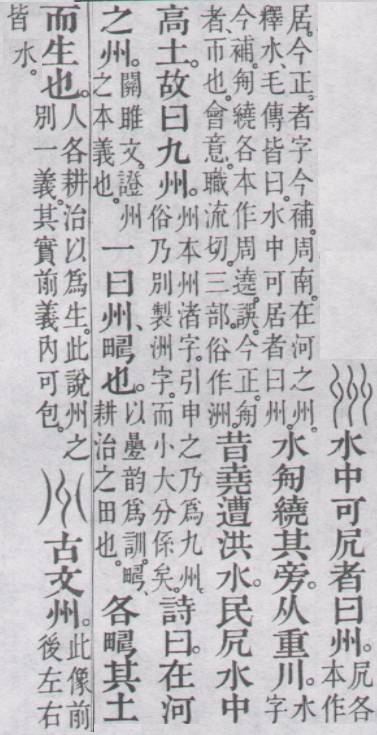 水中可凥者曰州。凥各本作
居。今正。者字今補。周南。在河之州。釋水、毛傳皆曰。水中可居者曰州。水𠣘繞其旁。从重川。水字
今補。𠣘繞各本作周遶。誤。今正。𠣘者、帀也。會意。職流切。三部。俗作洲。昔堯遭洪水。民凥水中
高土。故曰九州。州本州渚字。引申之乃爲九州。俗乃別製洲字。而小大分係矣。詩曰。在河
之州。關雎文。證州之本義也。一曰州、𤲮也。以曡韵爲訓。𤲮、耕治之田也。各𤲮其土
而生也。人各耕治以爲生。此說州之別一義。其實前義內可包。古文州。此像前後左右
皆水。